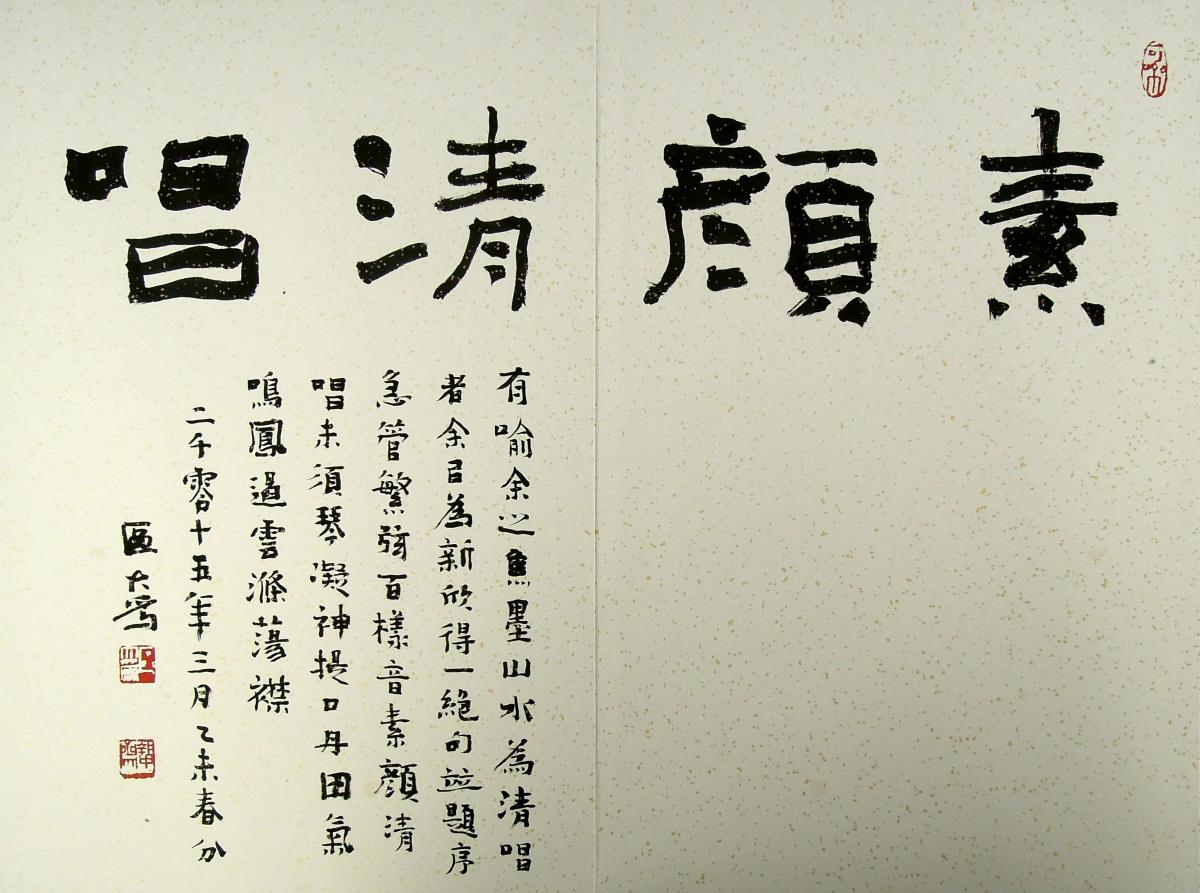 素顔清唱
有喻余之焦墨山水為清唱
者余㠯為新欣得一絕句並題序
急管繁弦百樣音素顔清
唱未須琴凝神提口丹田氣
鳴鳳遏雲滌蕩襟
二千零十五年三月乙未春分
區大為